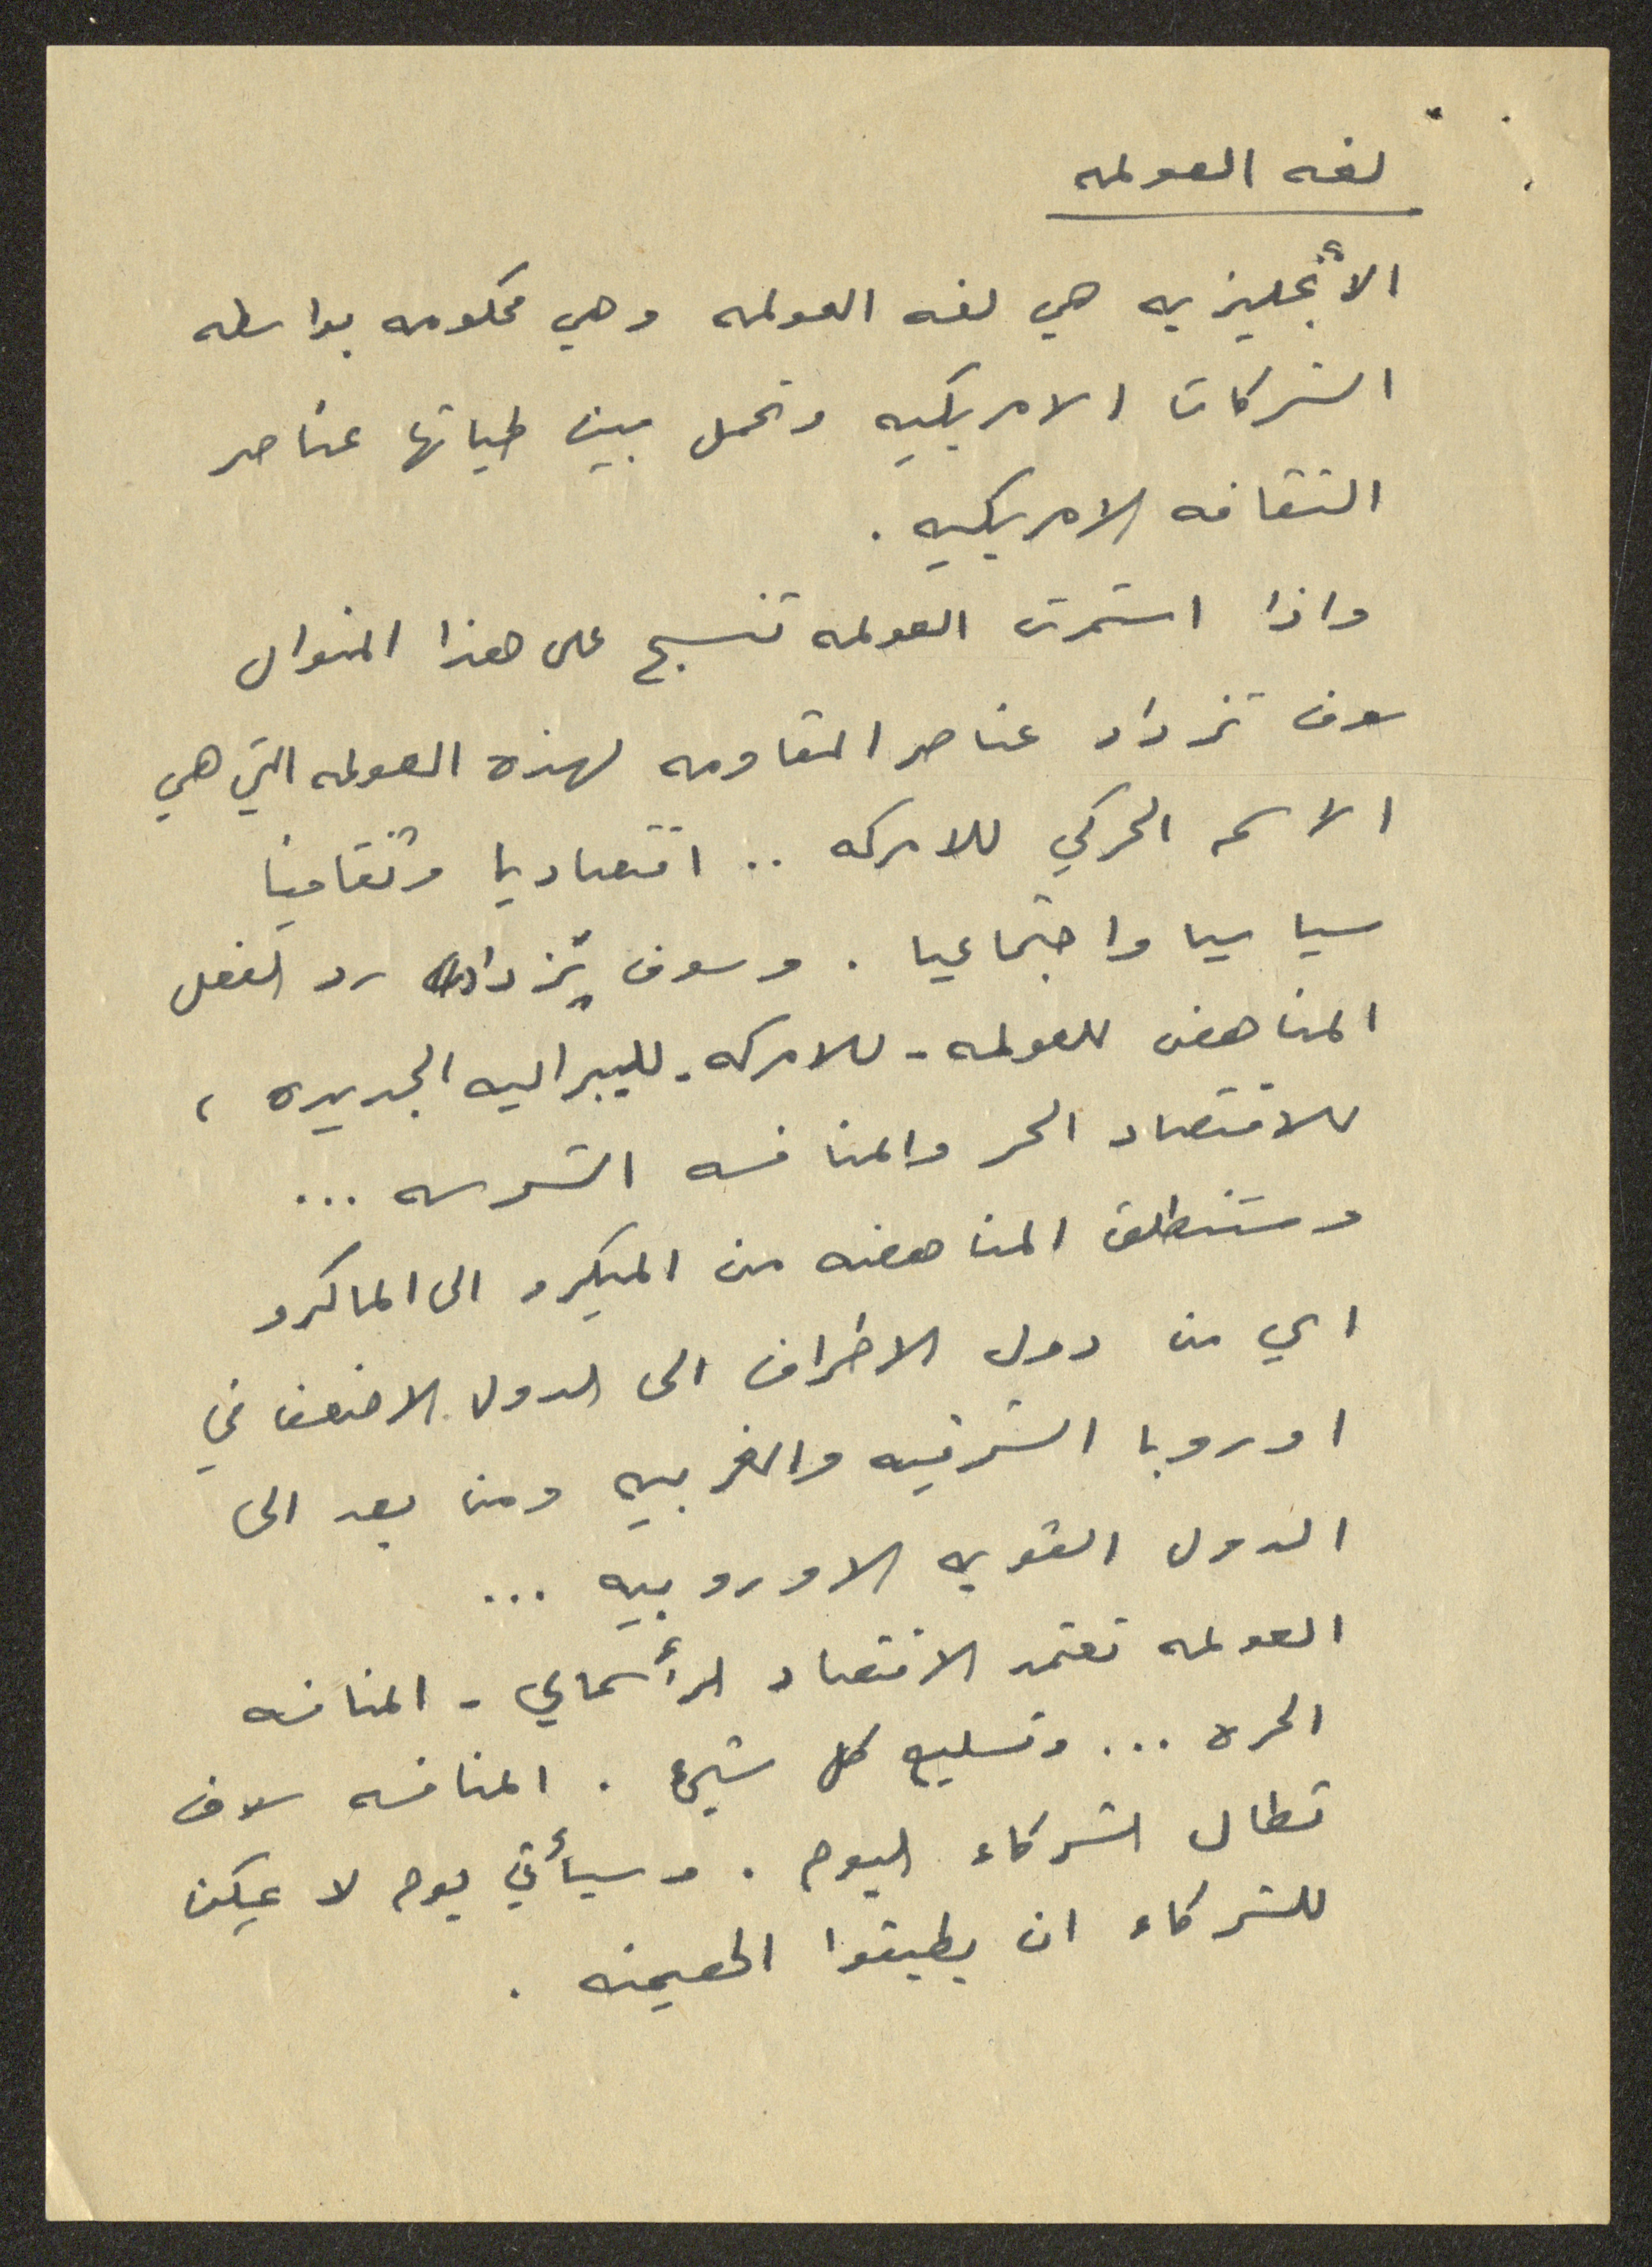 لغه العولمه
الأنجليزيه هي لغه العولمه وهي محكومه بواسطه
الشركات الامريكيه وتحمل بين طياتها عناصر
الثقافه الامريكيه .
واذا استمرت العولمه تنسج على هذا المنوال
سوف تزداد عناصر المقاومه لهذه العولمه التي هي
الاسم الحركي للامركه .. اقتصاديا وثقافيا
سياسيا واجتماعيا . وسوف يزداد رد الفعل
المناهض للعولمه - للامركه - لليبراليه الجديده ،
للاقتصاد الحر والمنافسه الشرسه ...
وستنطلق المناهضه من الميكرو الى الماكرو
اي من دول الاطراف الى الدول الاضعف في
اوروبا الشرقيه والغربيه ومن بعد الى
الدول القويه الاوروبيه ...
العولمه تعتمد الاقتصاد الرأسمالي - المنافسه
الحره ... وتسليع كل شيء . المنافسه سوف
تطال الشركاء اليوم . وسيأتي يوم لا يمكن
للشركاء ان يطيقوا الهيمنه .